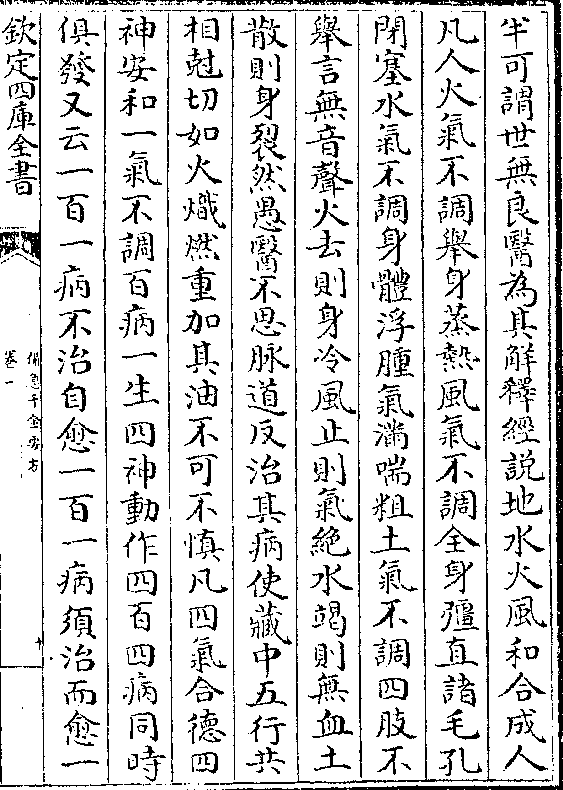 半可謂世無良醫為其解釋經說地水火風和合成人
凡人火氣不調舉身蒸熱風氣不調全身彊直諸毛孔
閉塞水氣不調身體浮腫氣滿喘粗土氣不調四肢不
舉言無音聲火去則身冷風止則氣絶水竭則無血土
散則身裂然愚醫不思脉道反治其病使藏中五行共
相尅切如火熾燃重加其油不可不慎凡四氣合德四
神安和一氣不調百病一生四神動作四百四病同時
俱發又云一百一病不治自愈一百一病須治而愈一
欽定四庫全書
備急千金要方
卷一